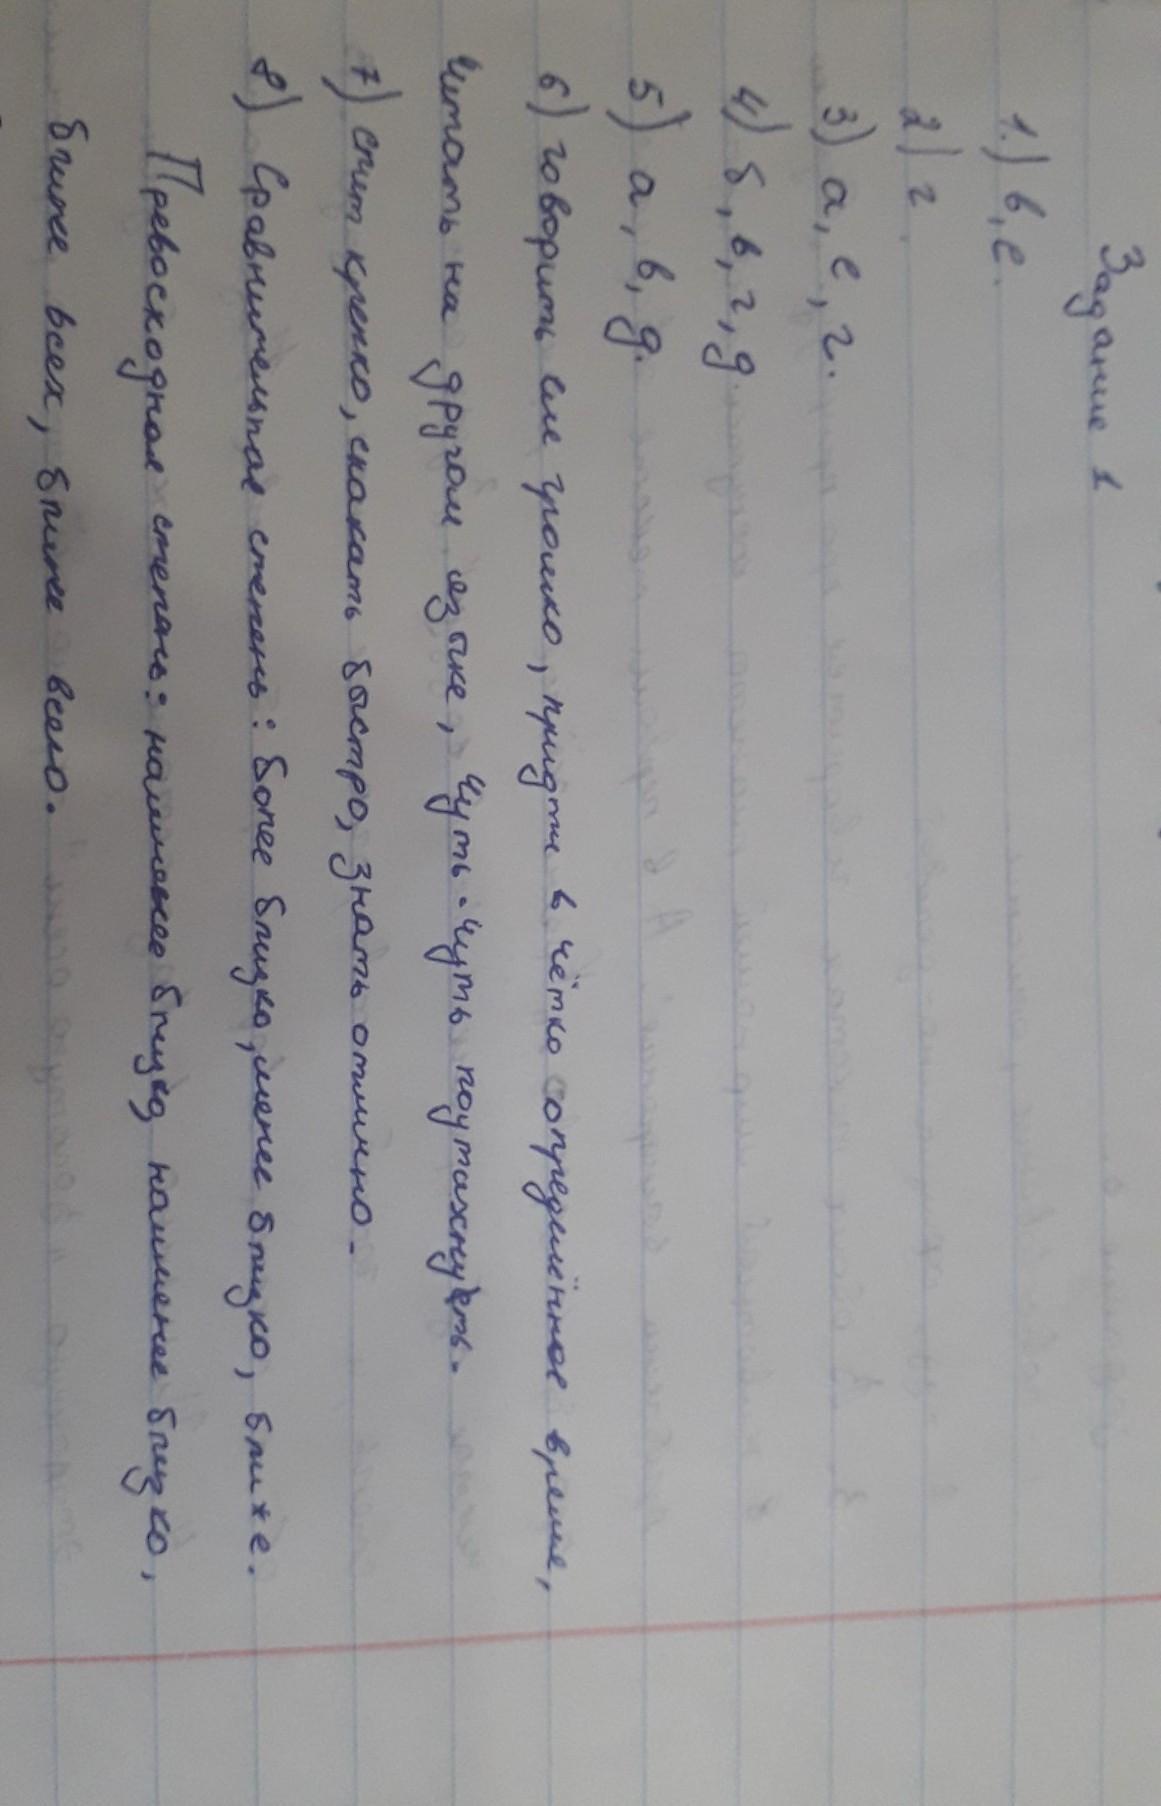 Задание 1
1.) в, е.
2) г.
3) а, е, г.
4) б, в, г, д.
5) а, в, д.
6) говорить еле громко, придти в чётко определённое время,
Читать на другом языке, Чуть-чуть потухнуть.
7) спит крепко, скакать быстро, знать отлично.
8) Сравнительная степень: более близко, менее близко, ближе.
Превосходная степень: наиболее близко, наименее близко,
ближе всех, ближе всего.